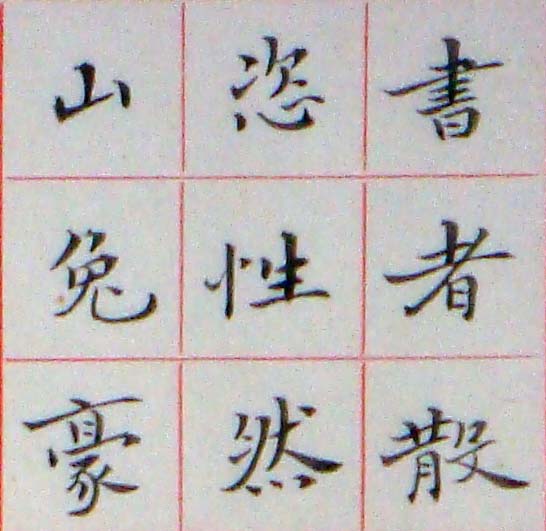 書者散
恣性然
山兔豪